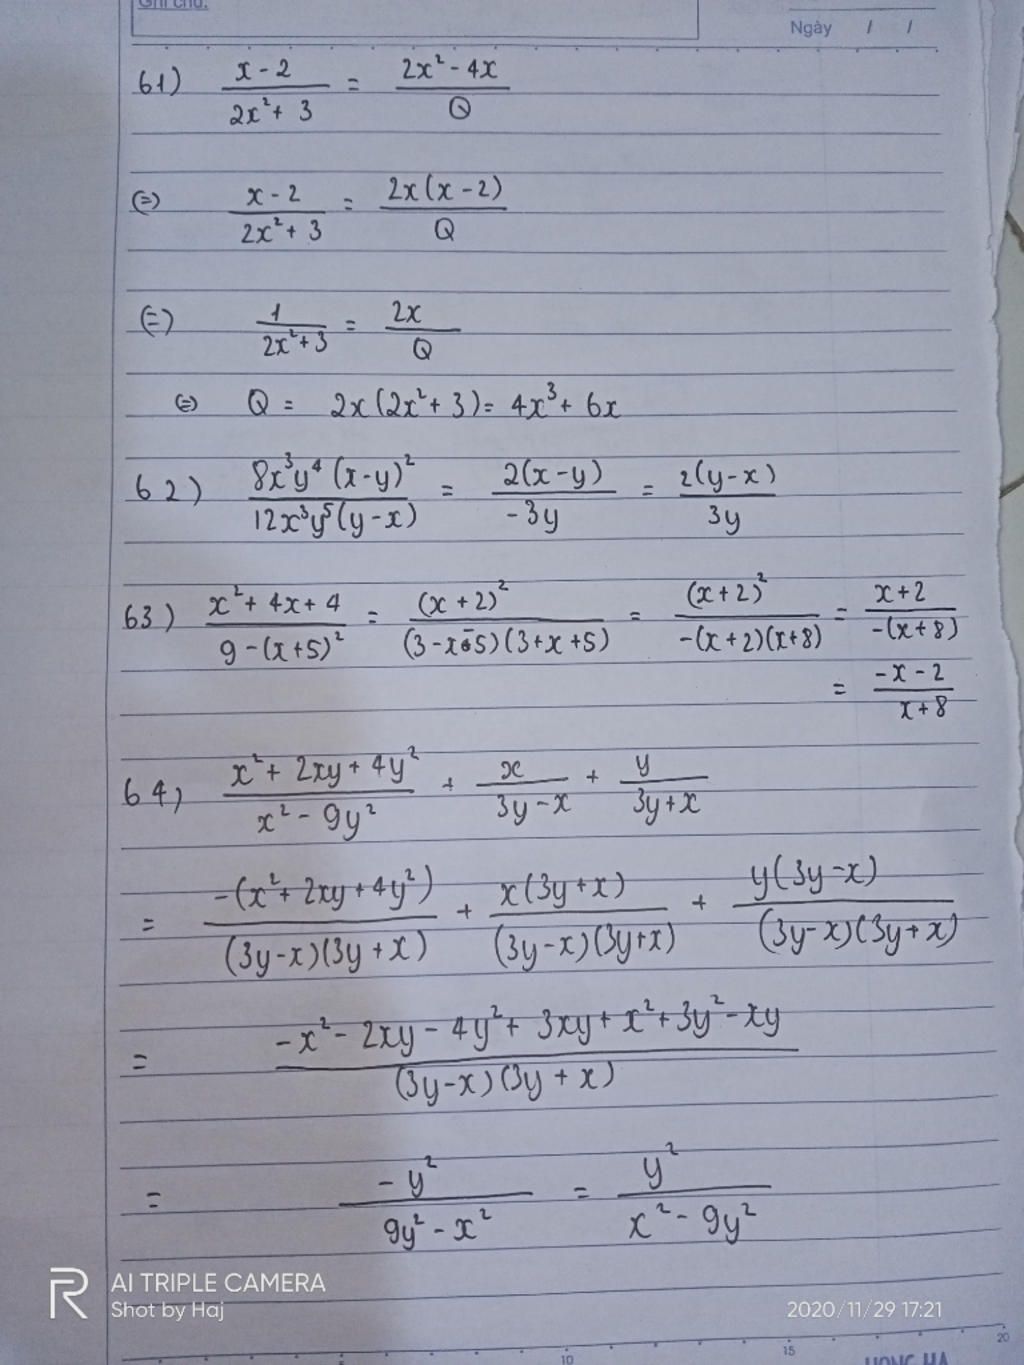 Ghi chú:
Ngày / /
61) (x - 2)/(2x² + 3) = (2x² - 4x)/Q
(=) (x - 2)/(2x² + 3) = (2x(x - 2))/Q
(=) 1/(2x² + 3) = 2x/Q
(=) Q = 2x(2x² + 3) = 4x³ + 6x
62) (8x³y⁴(x-y)²)/(12x³y⁵(y-x)) = (2(x-y))/(-3y) = (2(y-x))/(3y)
63) (x² + 4x + 4)/(9 - (x+5)²) = ((x+2)²)/((3-x-5)(3+x+5)) = ((x+2)²)/(-(x+2)(x+8)) = (x+2)/(-(x+8))
= (-x-2)/(x+8)
64) (x² + 2xy + 4y²)/(x² - 9y²) + x/(3y-x) + y/(3y+x)
= (-(x² + 2xy + 4y²))/((3y-x)(3y+x)) + (x(3y+x))/((3y-x)(3y+x)) + (y(3y-x))/((3y-x)(3y+x))
= (-x² - 2xy - 4y² + 3xy + x² + 3y² - xy)/((3y-x)(3y+x))
= (-y²)/(9y² - x²) = y²/(x² - 9y²)
AI TRIPLE CAMERA
Shot by Haj
2020/11/29 17:21
10 15 20